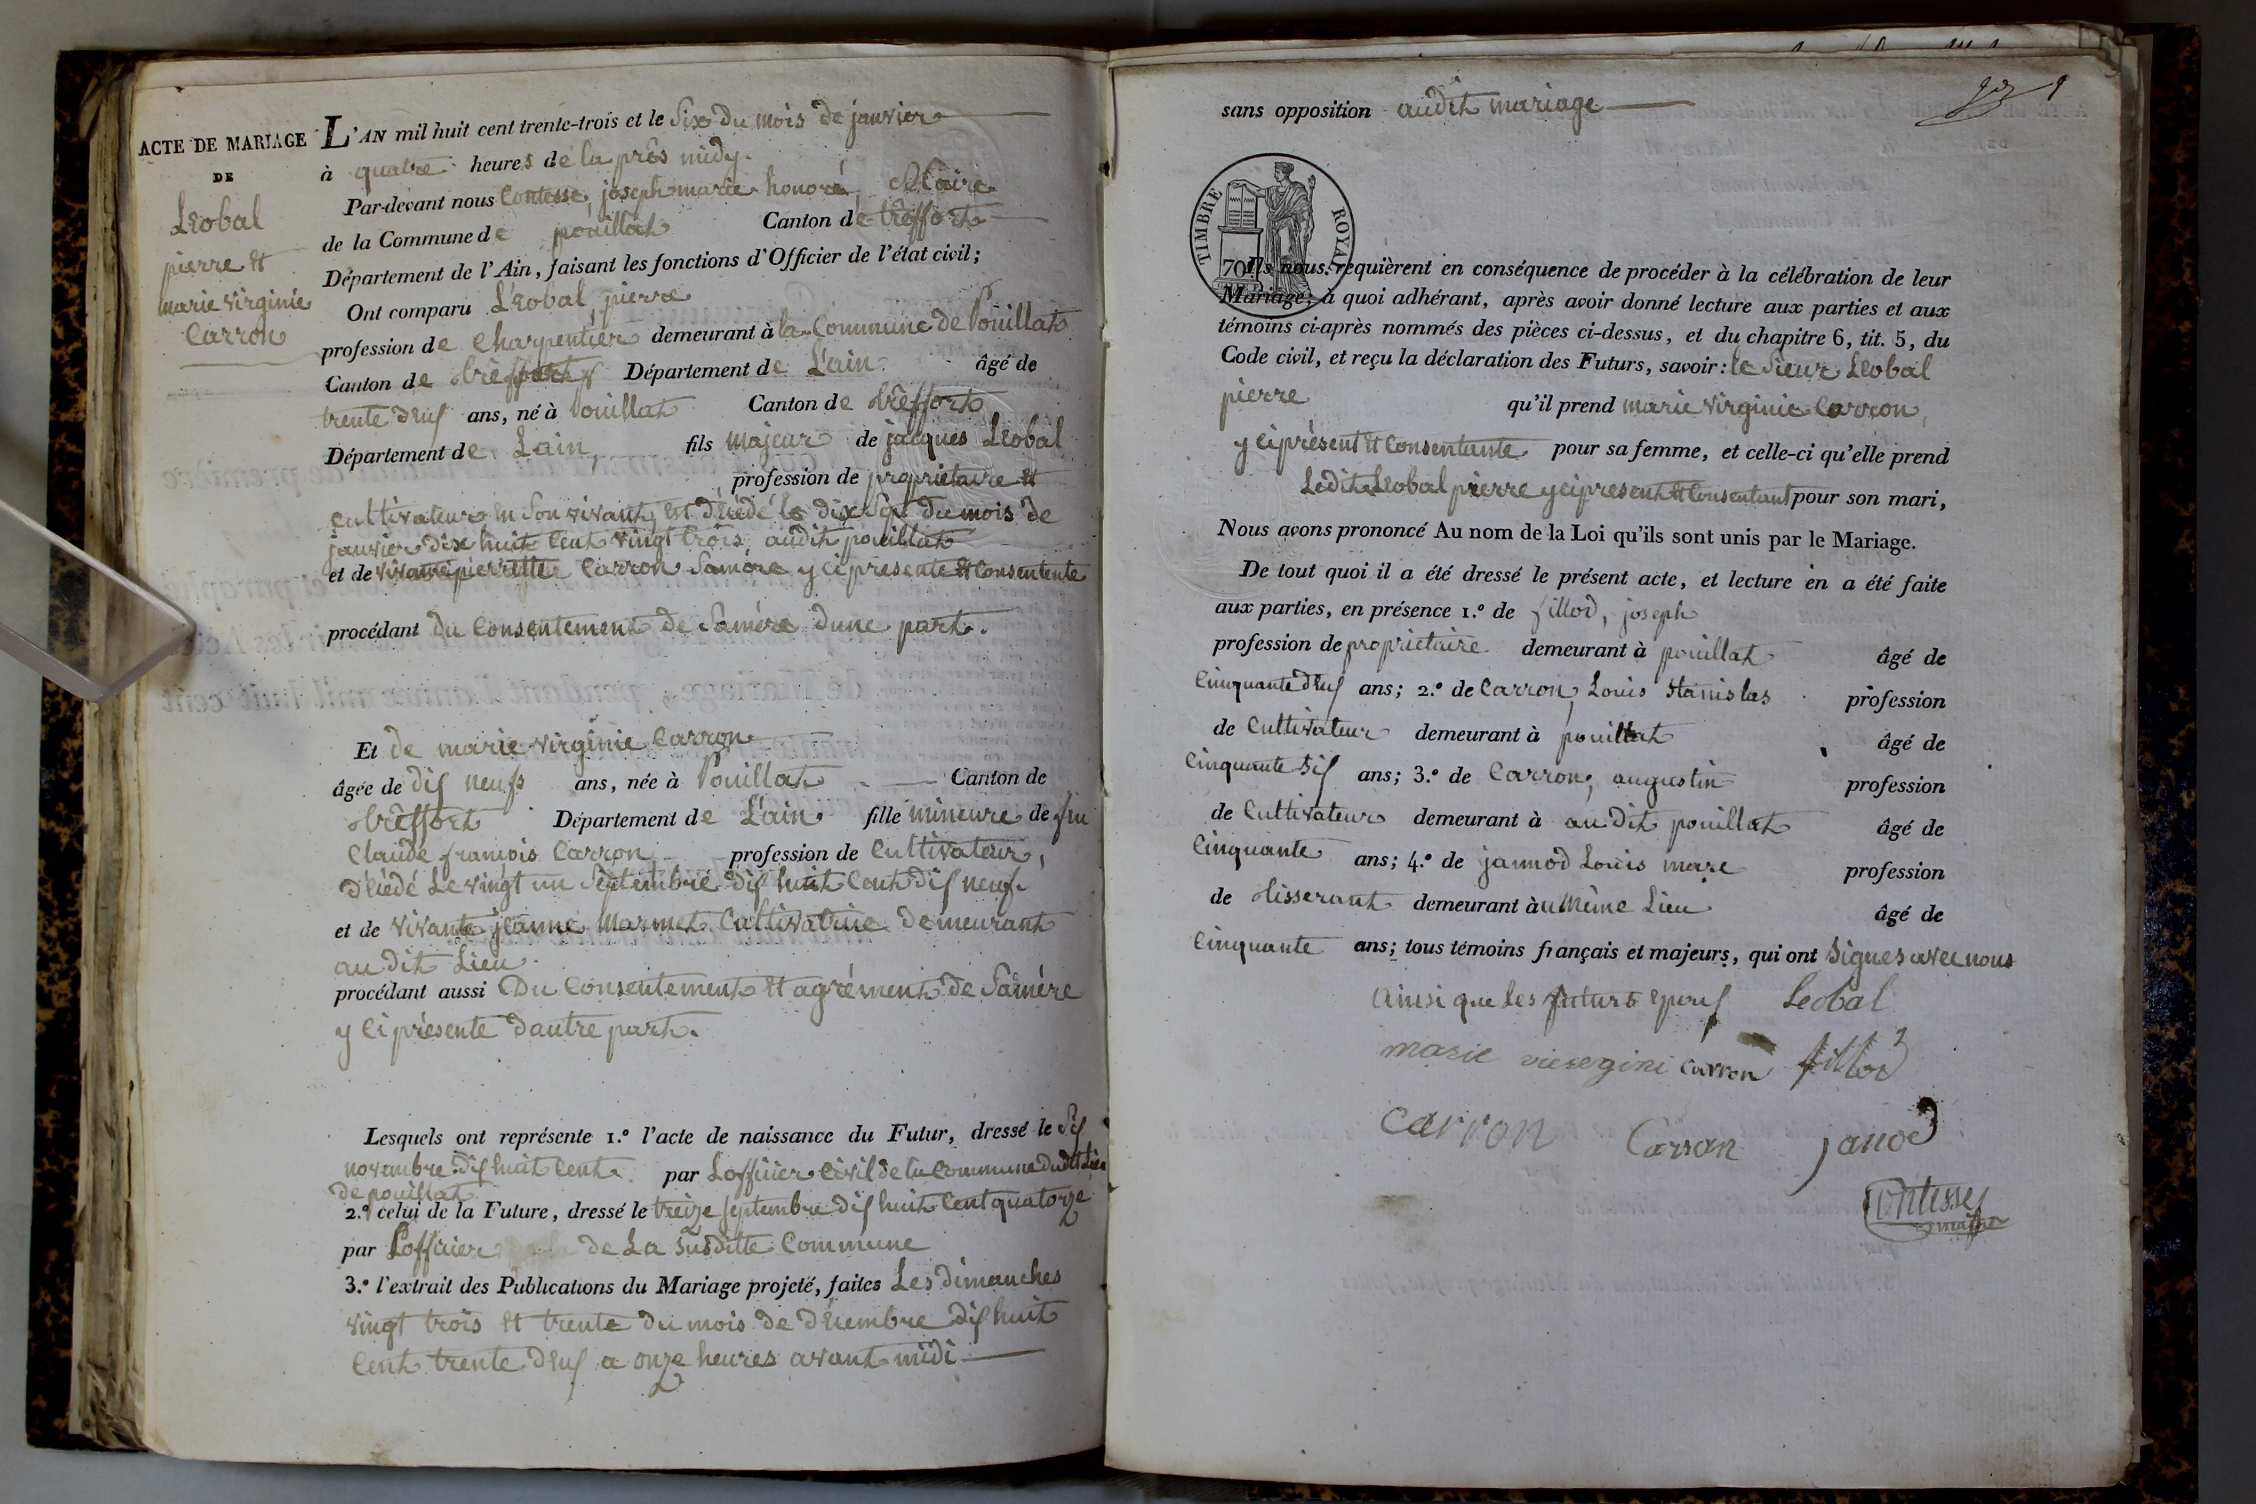 ACTE DE MARIAGE
DE
Léobal
pierre et
marie virginie
Carron
L'AN mil huit cent trente-trois et le Six du mois de janvier
à quatre heures de la près midy.
Par-devant nous Contesse, joseph marie honoré, Maire
de la Commune de pouillat Canton de trêffort
Département de l'Ain, faisant les fonctions d'Officier de l'état civil;
Ont comparu Léobal, pierre
profession de Charpentier demeurant à la Commune de Pouillat
Canton de trêffort Département de L'ain. âgé de
trente deuf ans, né à Pouillat Canton de trêffort
Département de Lain, fils majeur de jacques Léobal
profession de proprietaire et
cultivateur en Son vivant, et décédé le dix Sep du mois de
janvier dix huit Cent vingt trois, audit pouillat
et de vivante pierrette Carron Samére y ci présente et Consentente
procédant du Consentement de Samére dune part.
Et de marie virginie Carron
âgée de dif neufs ans, née à Pouillat Canton de
trêffort Département de L'ain. fille mineure de feu
Claude françois Carron profession de Cultivateur,
décédé Le vingt un Septembre dif huit Cent dif neuf.
et de vivante jeanne Marmet Cultivatrice demeurant
au dit Lieu.
procédant aussi Du Consentement et agrément de Samére
y ci présente dautre part.
Lesquels ont représente 1.º l'acte de naissance du Futur, dressé le Sif
novembre dif huit Cent. par Loffiicier Civil de la Commune dudit Lieu
de pouillat
2.º celui de la Future, dressé le treize septembre dif huit Cent quatorze
par Loffiicier de La Susditte Commune
3.º l'extrait des Publications du Mariage projeté, faites Les dimanches
vingt trois et trente du mois de décembre dif huit
Cent trente deuf a onze heures avant midi
sans opposition audit mariage
TIMBRE ROYAL
70
Ils nous requièrent en conséquence de procéder à la célébration de leur
Mariage; à quoi adhérant, après avoir donné lecture aux parties et aux
témoins ci-après nommés des pièces ci-dessus, et du chapitre 6, tit. 5, du
Code civil, et reçu la déclaration des Futurs, savoir: le Sieur Léobal
pierre qu'il prend marie virginie Carron,
y ci présent et Consentante pour sa femme, et celle-ci qu'elle prend
Ledit Léobal pierre y ci présent et Consentant pour son mari,
Nous avons prononcé Au nom de la Loi qu'ils sont unis par le Mariage.
De tout quoi il a été dressé le présent acte, et lecture en a été faite
aux parties, en présence 1.º de fillod, joseph
profession de proprietaire demeurant à pouillat âgé de
Cinquante deuf ans; 2.º de Carron, Louis Stanislas profession
de Cultivateur demeurant à pouillat âgé de
Cinquante Sif ans; 3.º de Carron, augustin profession
de Cultivateur demeurant à audit pouillat âgé de
Cinquante ans; 4.º de jannod Louis marc profession
de tisserant demeurant àu Même Lieu âgé de
Cinquante ans; tous témoins français et majeurs, qui ont Signes avec nous
Ainsi que les futurs epouf Leobal
marie viergini carron fillod
carron Carron janod
Contesse
maire